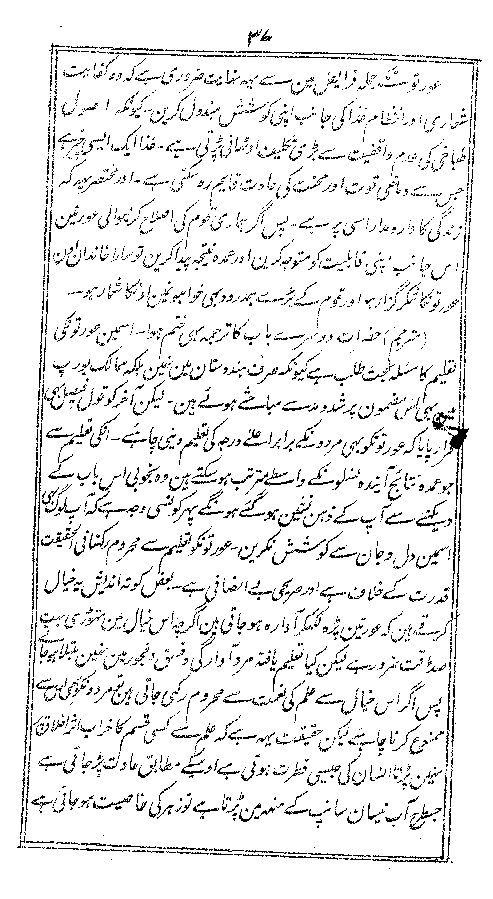 ۳۷
عورتونکے جملہ فرایض مین سے یہہ نہایت ضروری ہے کہ وہ کفایت
شعاری اور انتظام غذا کی جانب اپنی کوشش مبذول کرین ۔ کیونکہ اصول
طباخی کی عدم واقفیت سے بڑی تکلیفین اوٹھانی پڑتی ہے ۔ غذا ایک ایسی چیز ہے
جس سے دماغی قوت اور محنت کی عادت قایم رہ سکتی ہے ۔ اور مختصر یہہ کہ
زندگی کا دارومدار اسی پر ہے ۔ پس اگر ہماری قوم کی اصلاح کرنیوالی عورتین
اس جانب اپنی قابلیت کو متوجہ کرین اور عمدہ نتیجہ پیدا کرین تو سارا خاندان اون
عورتونکا شکر گزار ہو اور قوم کے بڑے ہمدرد و بہی خواہونمین اونکا شمار ہو ۔
(مترجم) حضرات دوسرے باب کا ترجمہ بھی ختم ہوا ۔ اسمین عورتونکی
تعلیم کا مسئلہ بحث طلب ہے کیونکہ صرف ہندوستان مین نہین بلکہ ممالک یورپ
مین بھی اس مضمون پر شد و مد سے مباحثے ہوئے ہین ۔ لیکن آخر کو قول فیصل یہی
قرار پایا کہ عورتونکو بھی مردونکے برابر اعلےٰ درجہ کی تعلیم دینی چاہئے ۔ انکی تعلیم سے
جو عمدہ نتایج آیندہ نسلونکے واسطے مترتب ہو سکتے ہین وہ بخوبی اس باب کے
دیکھنے سے آپ کے ذہن نشین ہو گئے ہونگے پھر کونسی وجہ ہے کہ آپ لوگ بھی
اسمین دل و جان سے کوشش نکرین ۔ عورتونکو تعلیم سے محروم رکھنا فی الحقیقت
قدرت کے خلاف ہے اور صریح بے انصافی ہے ۔ بعض کوتہ اندیش یہ خیال
کرتے ہین کہ عورتین پڑہ لکھکر آوارہ ہو جاتی ہین اگرچہ اس خیال مین تھوڑی سی بہت
صداقت ضرور ہے لیکن کیا تعلیم یافتہ مرد آوارگی و فسق و فجور مین نہین مبتلا ہو جاتے
پس اگر اس خیال سے علم کی نعمت سے محروم رکھی جاتی ہین تو مردونکو بھی اس سے
ممنوع کرنا چاہئے لیکن حقیقت یہہ ہے کہ علم سے کسی قسم کا خراب اثر اخلاق پر
نہین پڑتا انسان کی جیسی فطرت ہوتی ہے اوسکے مطابق عادت پڑ جاتی ہے
جسطرح آب نیسان سانپ کے منھ مین پڑتا ہے تو زہر کی خاصیت ہو جاتی ہے